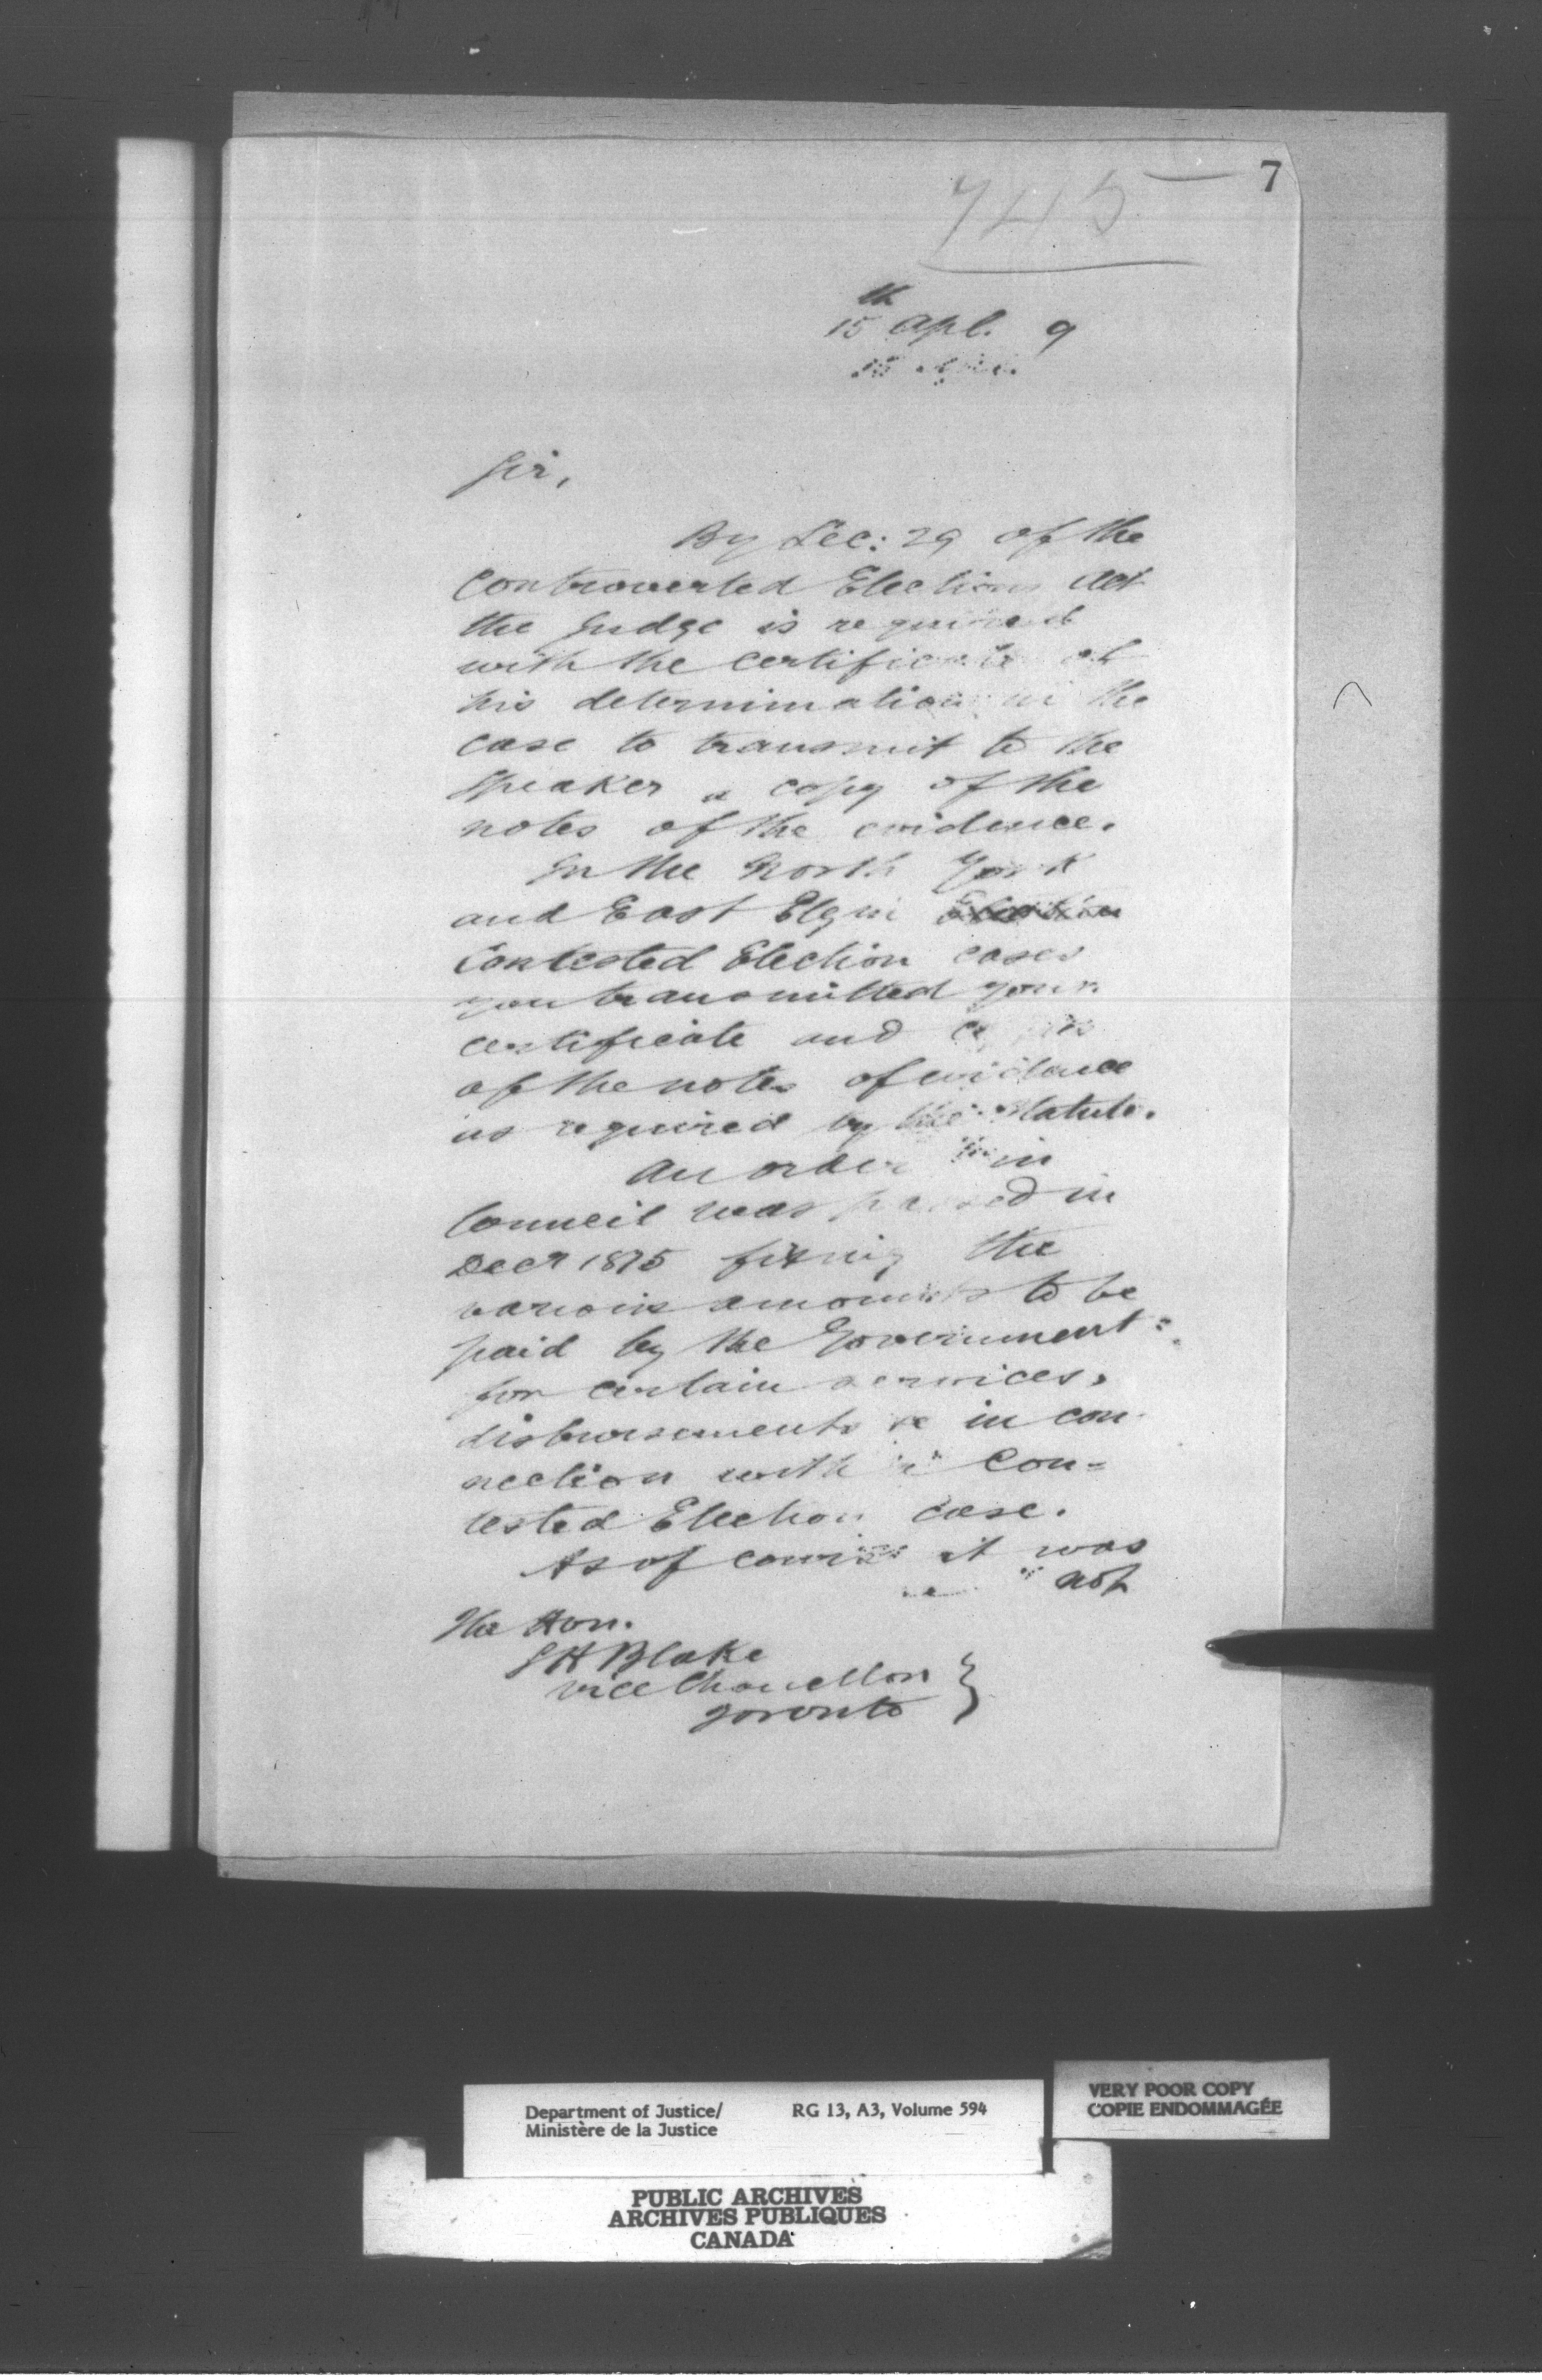 7
745
th
15 Apl. 9
Sir,
By Sec: 29 of the
Controverted Elections Act
the Judge is required
with the certificate of
his determination in the
case to transmit to the
Speaker a copy of the
notes of the evidence.
In the North York
and East Elgin Election
Contested Election cases
you transmitted your
certificate and copies
of the notes of evidence
as required by the Statute.
An order in
Council was passed in
Decr 1875 fixing the
various amounts to be
paid by the Government
for certain services,
disbursements &c in con-
nection with a Con-
tested Election case.
As of course it was
not
The Hon.
S H Blake
Vice Chancellor }
Toronto
Department of Justice/ RG 13, A3, Volume 594
Ministère de la Justice
VERY POOR COPY
COPIE ENDOMMAGÉE
PUBLIC ARCHIVES
ARCHIVES PUBLIQUES
CANADA